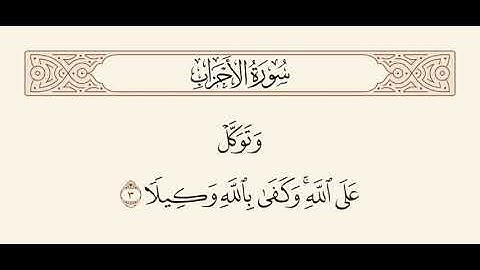 سُورَةُ الأَحْزَابِ
وَتَوَكَّلْ
عَلَى ٱللَّهِ ۚ وَكَفَىٰ بِٱللَّهِ وَكِيلًا ٣